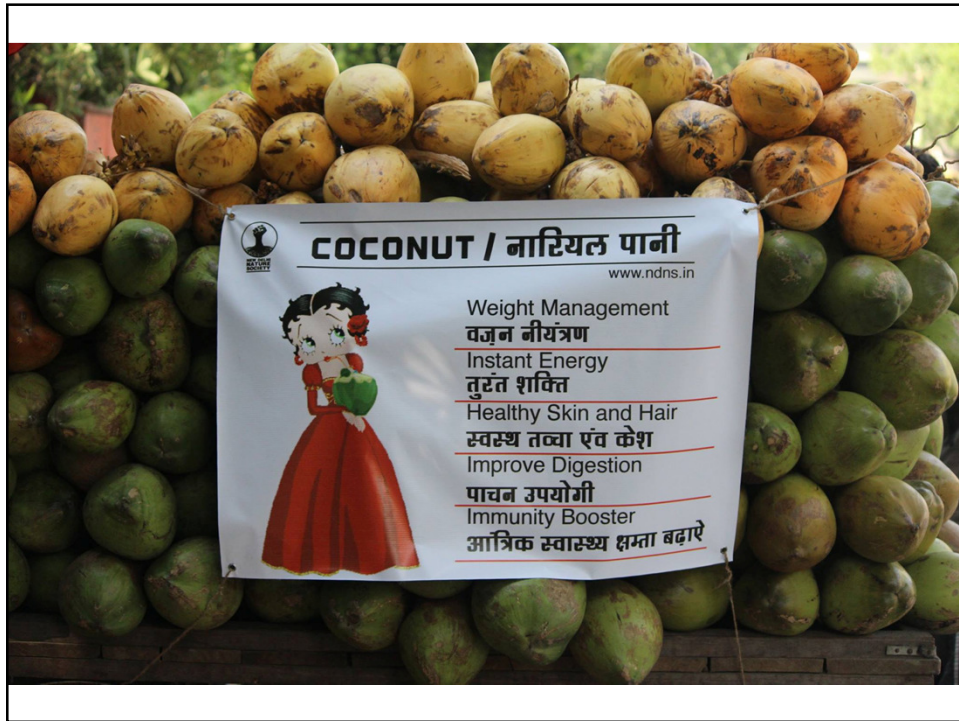 COCONUT / नारियल पानी
NEW DELHI
NATURE
SOCIETY
www.ndns.in
Weight Management
वज़न नीयंत्रण
Instant Energy
तुरंत शक्ति
Healthy Skin and Hair
स्वस्थ तव्चा एंव केश
Improve Digestion
पाचन उपयोगी
Immunity Booster
आंत्रिक स्वास्थ्य क्षम्ता बढ़ाऐ